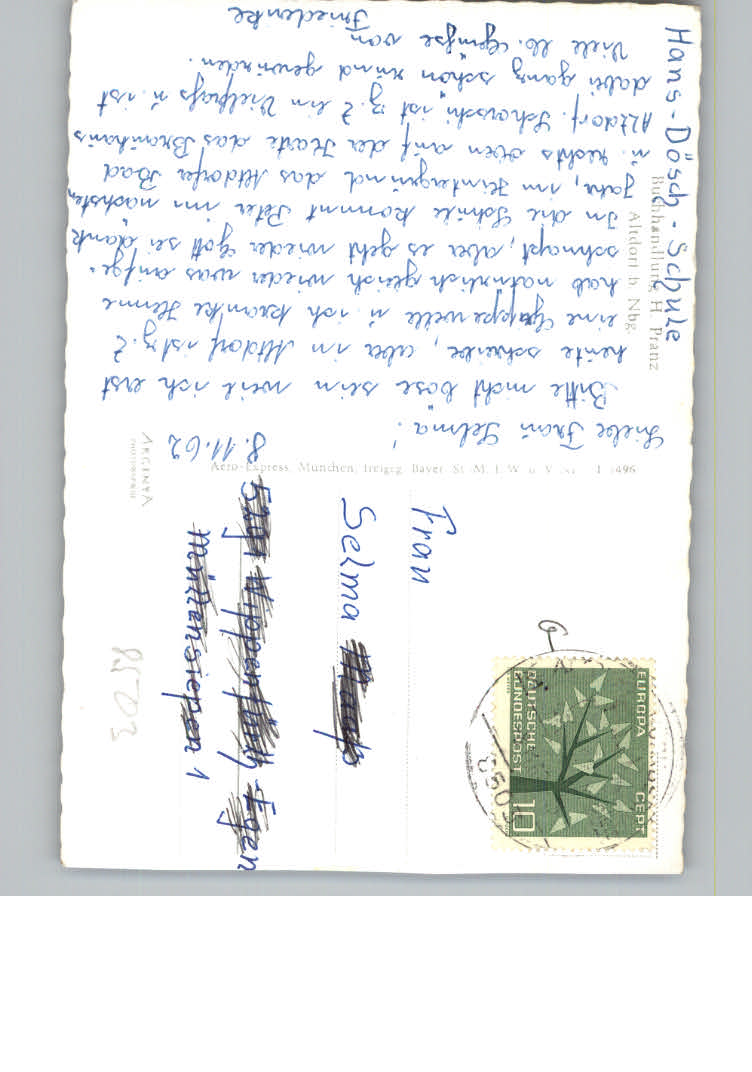 Hans-Dösch-Schule
Buchhandlung H. Pranz
Altdorf b. Nbg.
8.11.62
Liebe Frau Selma!
Bitte nicht böse sein weil ich erst
heute schreibe, aber in Altdorf ist z. Z
eine Grippewelle u. ich kranke Henne
hab natürlich gleich wieder was aufge-
schnapt, aber es geht wieder Gott sei dank
In die Schule kommt Peter im nächsten
Jahr, im Hintergrund das Altdorfer Bad
u. rechts oben auf der Karte das Brauhaus
Altdorf. ist z. Z ein Vielfraß u. ist
dabei ganz schön rund geworden.
Viele lb. Grüße von
Aero-Express, München, freigeg. Bayer. St. M. f. W. u. V.
ARGENTA
Frau
Selma
Wipperfürth-Egen
Müllensiepen 1
EUROPA CEPT
DEUTSCHE
BUNDESPOST
10
8503